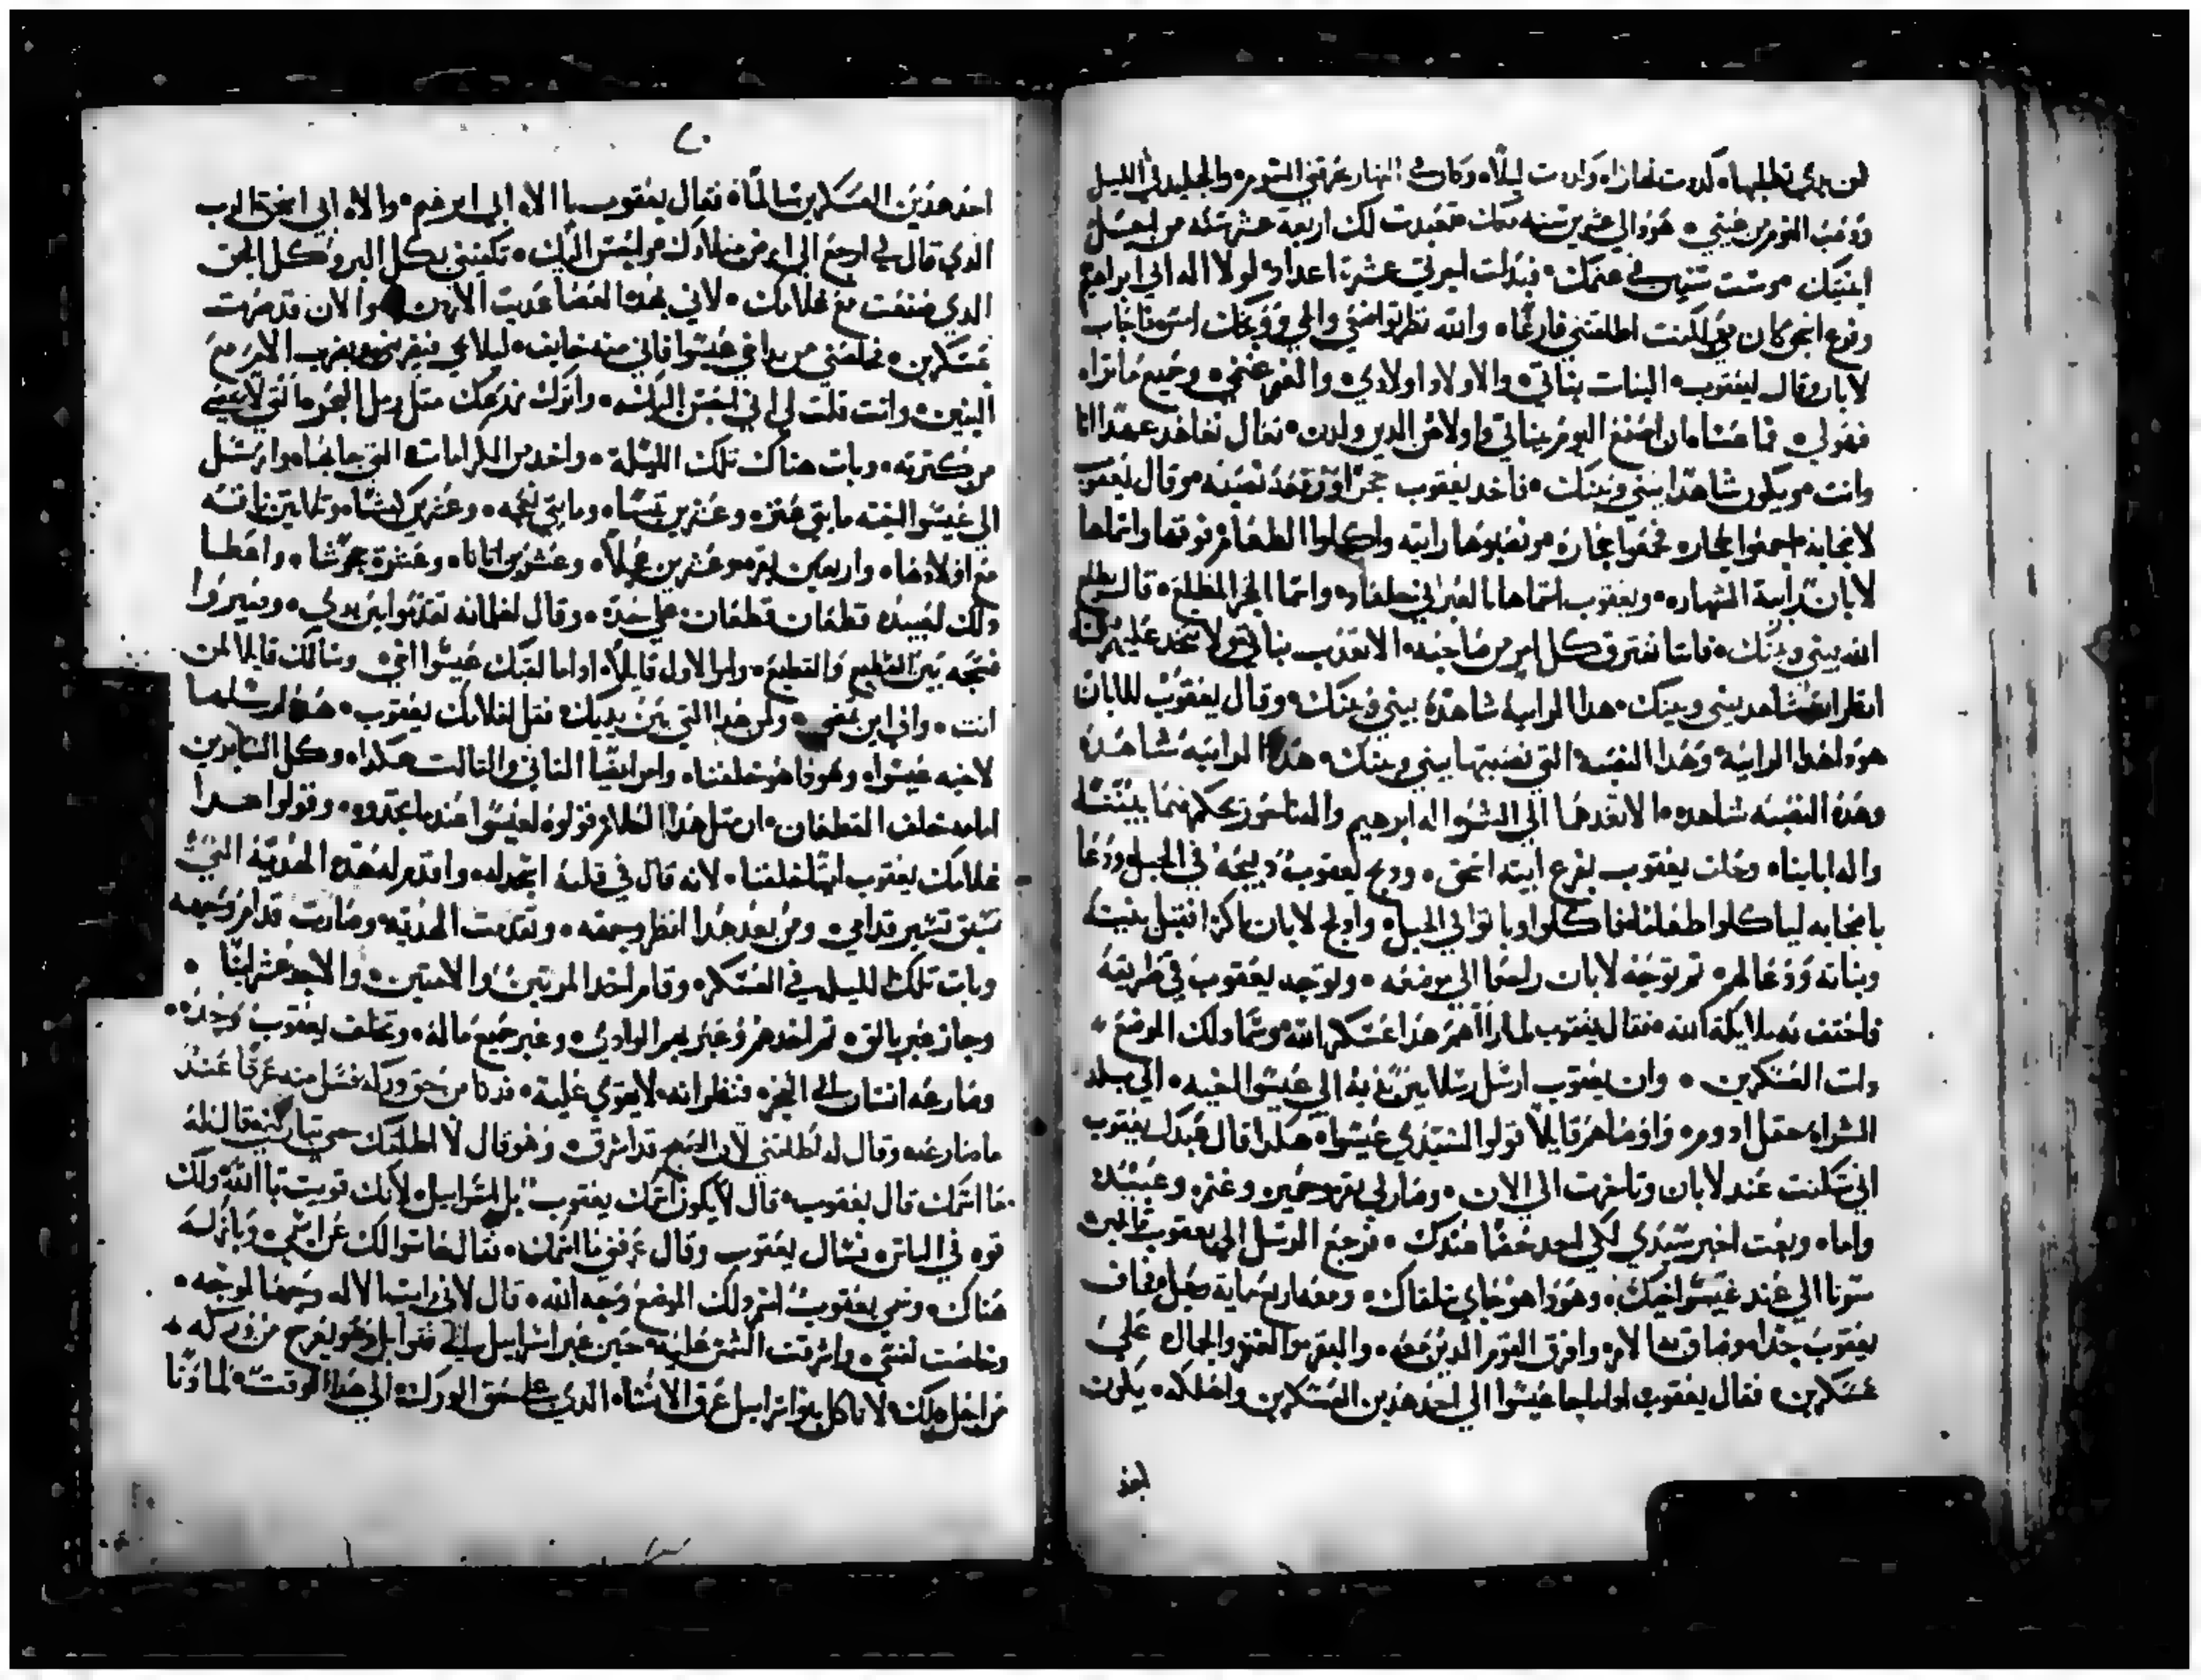 من يدي تطلبها كدرت نهارا وكدرت ليلا وكان في النهار يحرقني السموم والجليد في الليل
وذهب النوم من عيني هوذا لي عشرين سنه تعبدت لك اربعة عشر سنه من اجل
ابنتيك وست سنين في غنمك فبدلت اجرتي عشرة اعداد لولا اله ابي ابراهيم
وفزع اسحق كان لي لكنت اطلقتني فارغا والله نظر تواضعي
لابان وقال ليعقوب البنات بناتي والاولاد اولادي والغنم غنمي وجميع ما تراه
فهو لي فما عساه ان اصنع اليوم ببناتي واولادهن الدين ولدن تعال نعاهد عهدا انا
وانت ويكون شاهدا بيني وبينك فاخد يعقوب حجرا ورفعه نصبه وقال يعقوب
لاصحابه اجمعوا حجاره فجمعوا حجاره ونصبوها رابيه واكلوا الطعام فوقها واسماها
لابان رابية الشهاده ويعقوب اسماها بالعبراني جلعاد
الله بيني وبينك فاننا نفترق كل امر من صاحبه الا تعذب بناتي ولا تتخد عليهن
انظر الله شاهد بيني وبينك هدا الرابية شاهدة بيني وبينك وقال يعقوب للابان
هودا هدا الرابية وهدا النصبه التي نصبتها بيني وبينك هدا الرابيه شاهده
وهده النصبه شاهده اله ابرهيم والناحور يحكم فيما بيننا
واله ابائنا وحلف يعقوب بفزع ابيه اسحق ودبح يعقوب دبيحه في الجبل ودعا
باصحابه لياكلوا طعاما فاكلوا وباتوا في الجبل وادلج لابان باكرا فقبل بنيه
وبناته ودعا لهم ثم توجه لابان راجعا الي موضعه وتوجه يعقوب في طريقه
فاختف به ملايكة الله فقال يعقوب لما راهم هدا عسكر الله وسما دلك الموضع
دات العسكرين وان يعقوب ارسل رسلا بين يديه الي عيسوا اخيه الي بلد
الشراه حقل ادوم واوصاهم قايلا قولوا لسيدي عيسوا هكدا قال عبدك يعقوب
اني سكنت عند لابان وتاخرت الي الان وصار لي بقر وحمير وغنم وعبيد
واما وبعت اخبر سيدي لكي اجد حضا عندك فرجع الرسل الي يعقوب قايلين
سرنا الي عند عيسوا اخيك وهودا هو جاي يتلقاك ومعه اربعماية رجل فخاف
يعقوب جدا وضاق به الامر وافرق القوم الدين معه والبقر والغنم والجمال علي
عسكرين فقال يعقوب ادا ما جا عيسوا الي احد هدين العسكرين واهلكه يكون
احد
٢٠
احد هدين العسكرين سالما فقال يعقوب يا الاه ابي ابرهيم والاه ابي اسحق الرب
الدي قال لي ارجع الي ارض ميلادك واحسن اليك تكفيني بكل البر وكل الحق
الدي صنعت مع غلامك لاني بهده العصا عديت الاردن والان قد صرت
عسكرين فخلصني من يد اخي عيسوا فاني منه خايف ليلا ياتي فيضرب الام مع
البنين وانت قلت لي اني احسن اليك واترك زرعك متل رمل البحر
من كترته وبات هناك تلك الليلة واخد من الكرامات التي جا بها وارسل
الي عيسوا اخيه مايتي عنزه وعشرين تيسا ومايتي نعجه وعشرين كبشا
مع اولادها واربعين بقره وعشرين عجلا وعشرين اتانا وعشرة جحوشا واعطا
دلك لعبيده قطعان قطعان علي حده وقال لغلمانه تقدموا بين يدي وصيروا
فسحه بين القطيع والقطيع وامر الاول قايلا ادا ما لقيك عيسوا اخي وسالك قايلا لمن
انت واين تمضي ولمن هدا التي بين يديك فقل لغلامك يعقوب هديه ارسلها
لاخيه عيسوا وهودا هو خلفنا وامر ايضا التاني والتالت هكدا وكل السايرين
امامه خلف القطعان ان متل هدا الكلام قولوه لعيسوا عندما تجدوه وقولوا هدا
غلامك يعقوب ايضا خلفنا لانه قال في قلبه اقدم له هده الهديه التي
تسبق تسير قدامي ومن بعد هدا انظر وجهه وتقدمت الهديه وصارت قدام وجهه
وبات تلك الليله في العسكر وقام اخد المرتين والامتين والاحد عشر ابنا
وجاز عبر يابق ثم اخدهم وعبر بهم الوادي وعبر جميع ماله وتخلف يعقوب وحده
وصارعه انسان الي الفجر فنظر انه لا يقوي عليه فدنا من حق وركه عند
ما صارعه وقال له اطلقني لان الصبح قد اشرق وهو قال لا اطلقك حتي تباركني فقال له
ما اسمك قال يعقوب قال لا يكون اسمك يعقوب بل اسرايل لانك قويت بالله ولك
قوه في الناس فسال يعقوب وقال عرفني ما اسمك فقال لماذا تسالك عن اسمي وباركه
هناك وسمي يعقوب اسم دلك الموضع وجه الله قال لاني رايت الاله وجها لوجه
وخلصت نفسي واشرقت الشمس عليه حين عبر اسرايل وهو يعرج من وركه
من اجل دلك لا ياكل بنوا اسرايل عرق النسا الدي علي حق الورك الي هدا الوقت لما دنا